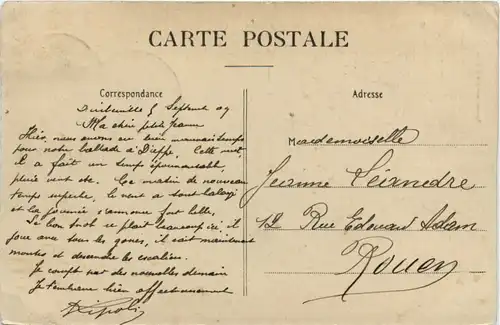 CARTE POSTALE
Correspondance
Adresse
5 Septemb 09
Ma chère petite Jeanne
Hier, nous avons eu bien mauvais temps
pour notre ballade à Dieppe. Cette nuit,
il a fait un temps épouvantable,
pluie vent etc. Ce matin de nouveau
temps superbe, le vent a tout balayé
et la journée s'annonce fort belle.
Le bon trot se plait beaucoup ici, il
joue avec tous les gosses, il sait maintenant
monter et descendre les escaliers.
Je compte sur des nouvelles demain
Je t'embrasse bien affectueusement
Mademoiselle
Jeanne
12 Rue Edouard Adam
Rouen